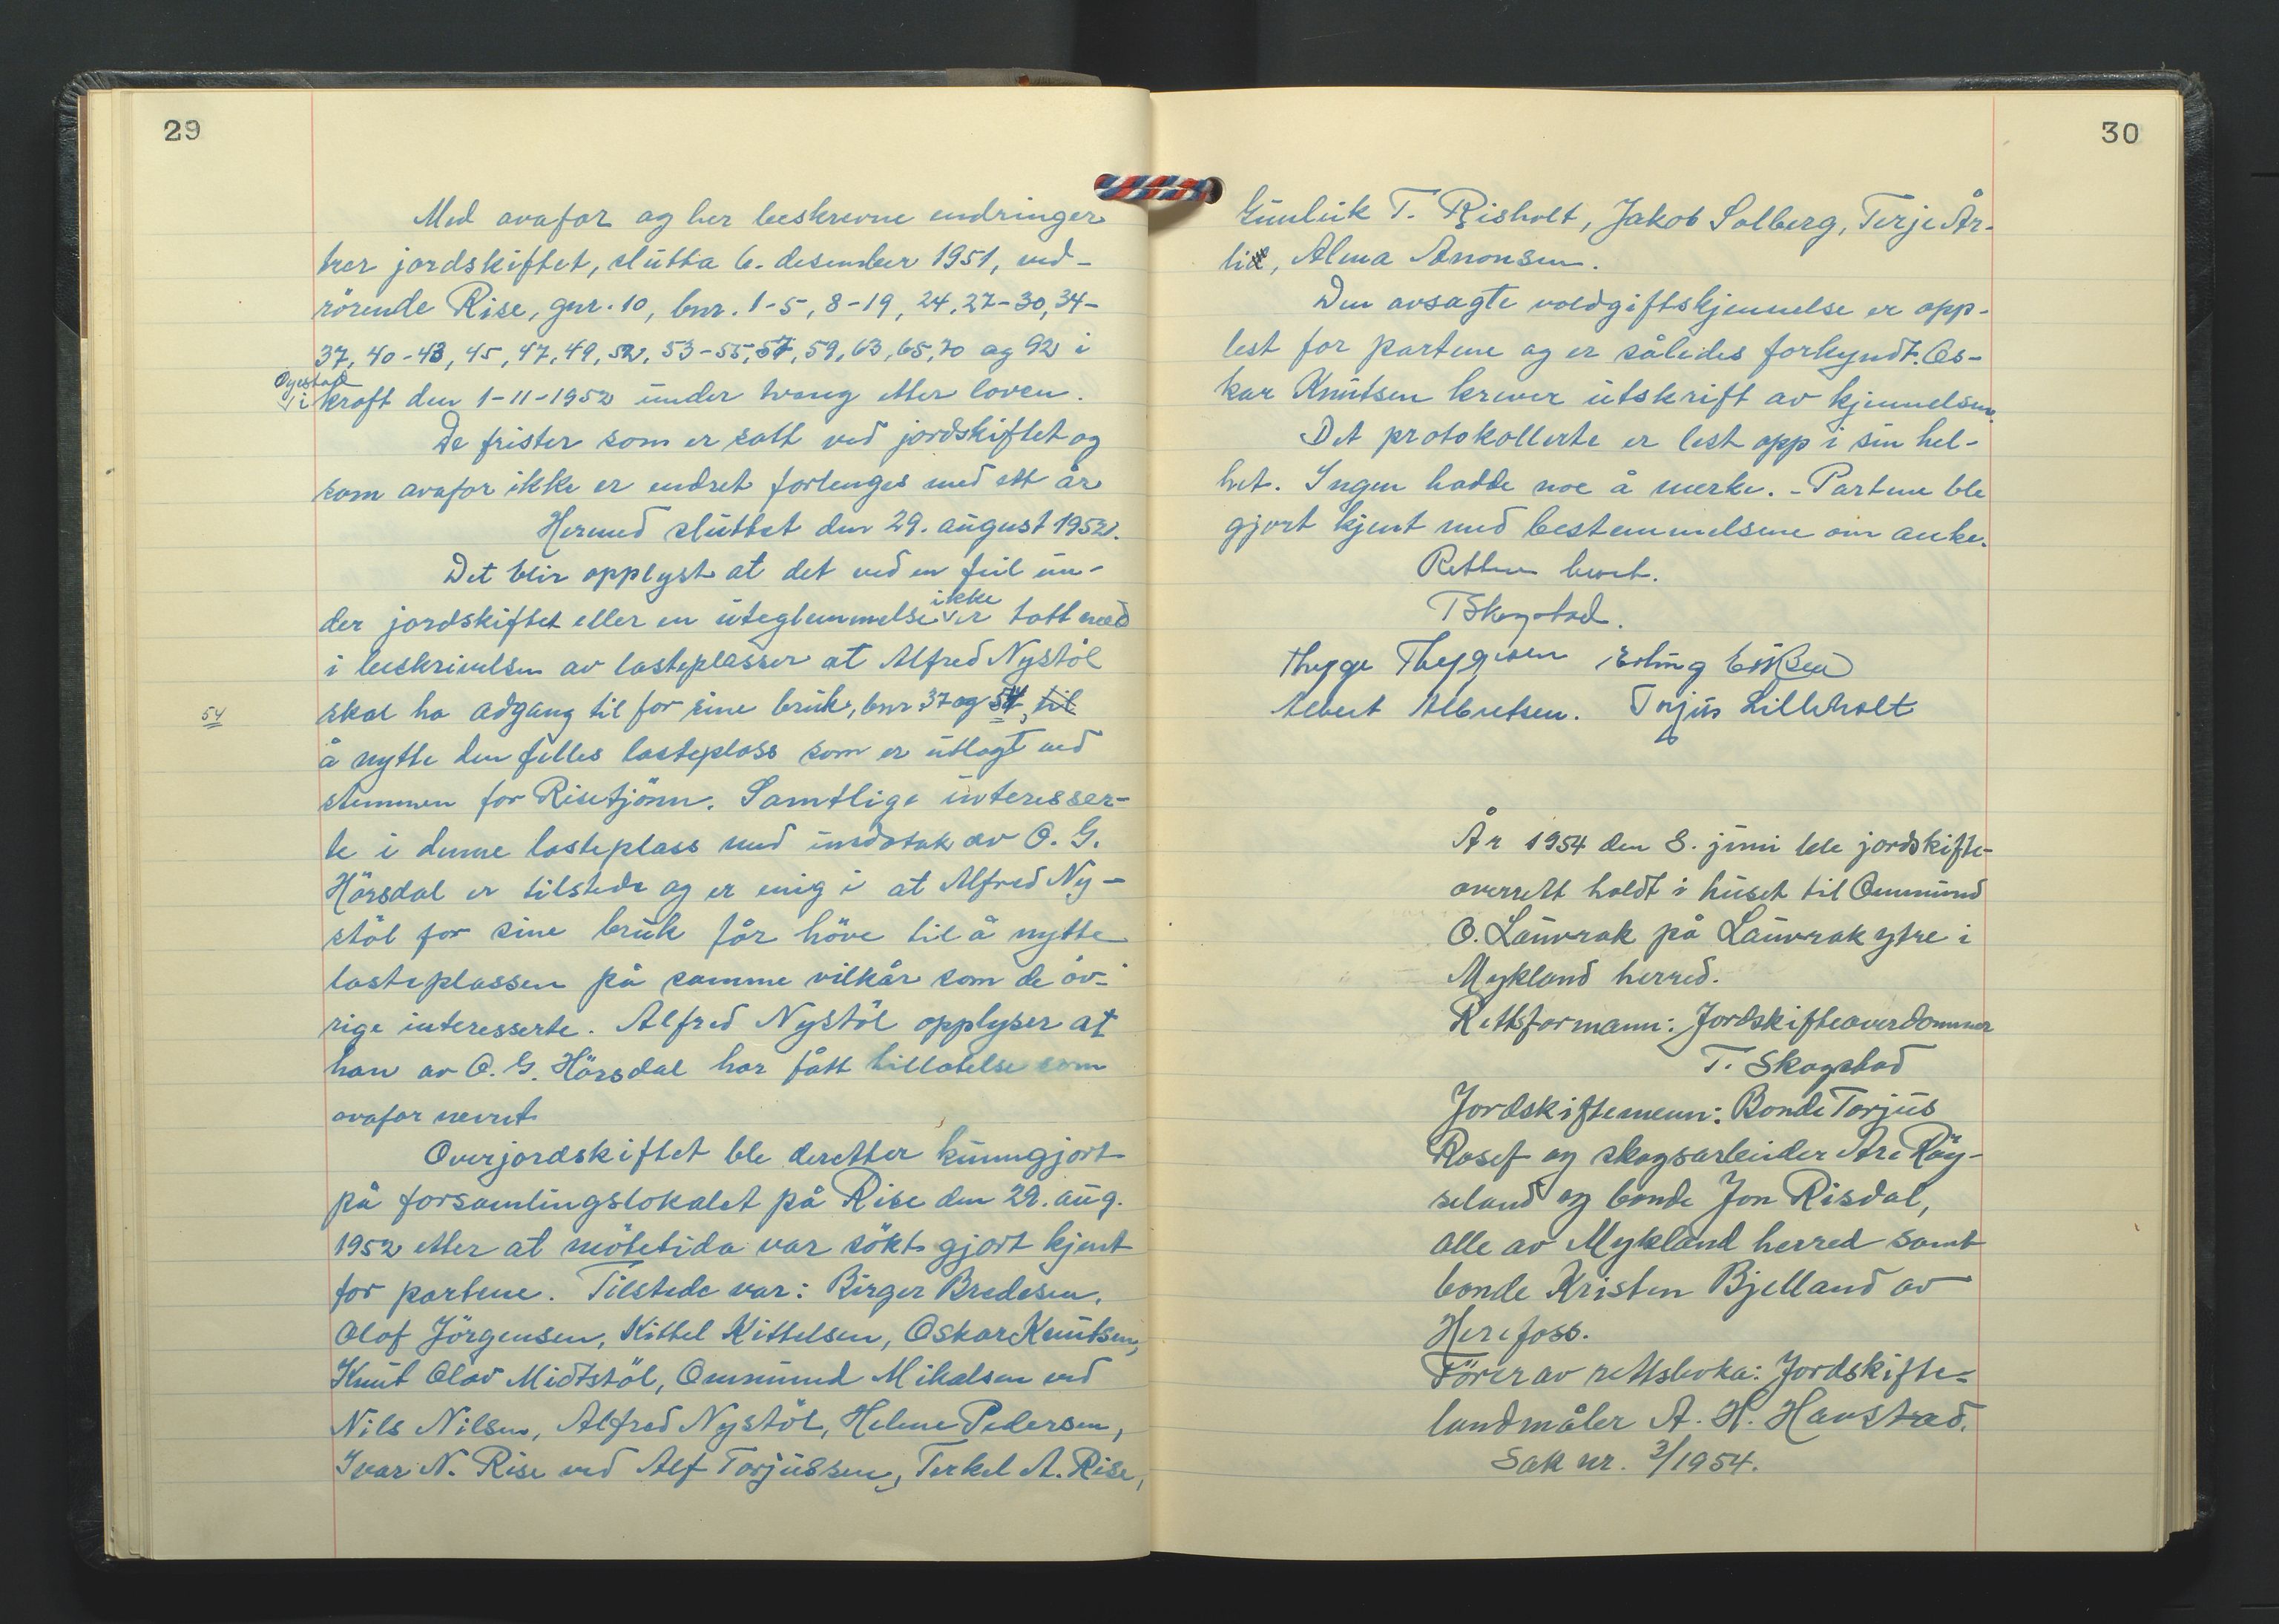 29
Med ovafor og her beskrevne endringer
trer jordskiftet, slutta 6. desember 1951, ved-
rörende Rise, gnr. 10, bnr. 1-5, 8-19, 24, 27-30, 34-
37, 40-43, 45, 47, 49, 52, 53-55, 57, 59, 63, 65, 70 og 92 i
Öyestad
i kraft den 1-11-1952 under tvang etter loven.
De frister som er satt ved jordskiftet og
som ovafor ikke er endret forlenges med ett år
Hermed sluttet den 29. august 1952.
Det blir opplyst at det ved en feil un-
der jordskiftet eller en uteglemmelse ikke er tatt med
i beskrivelsen av lasteplasser at Alfred Nystöl
54
skal ha adgang til for sine bruk, bnr 37 og 54, til
å nytte den felles lasteplass som er utlagt ved
stemmen for Risetjönn. Samtlige interesser-
te i denne lasteplass med unndatak av O. G.
Hörsdal er tilstede og er enig i at Alfred Ny-
stöl for sine bruk får höve til å nytte
lasteplassen på samme vilkår som de öv-
rige interesserte. Alfred Nystöl opplyser at
han av O. G. Hörsdal har fått tillatelse som
ovafor nevnt
Overjordskiftet ble deretter kunngjort
på forsamlingslokalet på Rise den 29. aug.
1952 etter at mötetida var sökt gjort kjent
for partene. Tilstede var: Birger Bredesen,
Olaf Jörgensen, Kittel Kittelsen, Oskar Knutsen,
Knut Olav Midtstöl, Ommund Mikalsen ved
Nils Nilsen, Alfred Nystöl, Helene Pedersen,
Ivar N. Rise ved Alf Torjussen, Terkel A. Rise,
30
Gunluk T. Risholt, Jakob Solberg, Terje År-
lie, Alma Anonsen.
Den avsagte voldgiftskjennelse er opp-
lest for partene og er således forkyndt. Os-
kar Knutsen krever utskrift av kjennelsen.
Det protokollerte er lest opp i sin hel-
het. Ingen hadde noe å merke. - Partene ble
gjort kjent med bestemmelsene om anke.
Retten hevet.
T Skogstad.
Thygge Thygesen Erling Eriksen
Albert Albretsen. Torjus Lilleholt
År 1954 den 8. juni ble jordskifte-
overrett holdt i huset til Ommund
O. Lauvrak på Lauvrak ytre i
Mykland herred.
Rettsformann: Jordskifteoverdommer
T. Skogstad
Jordskiftemenn: Bonde Torjus
Rosef og skogsarbeider Are Röy-
seland og bonde Jon Risdal,
alle av Mykland herred samt
bonde Kristen Bjelland av
Herefoss.
Förer av rettsboka: Jordskifte-
landmåler A. H. Havstad.
Sak nr. 3/1954.